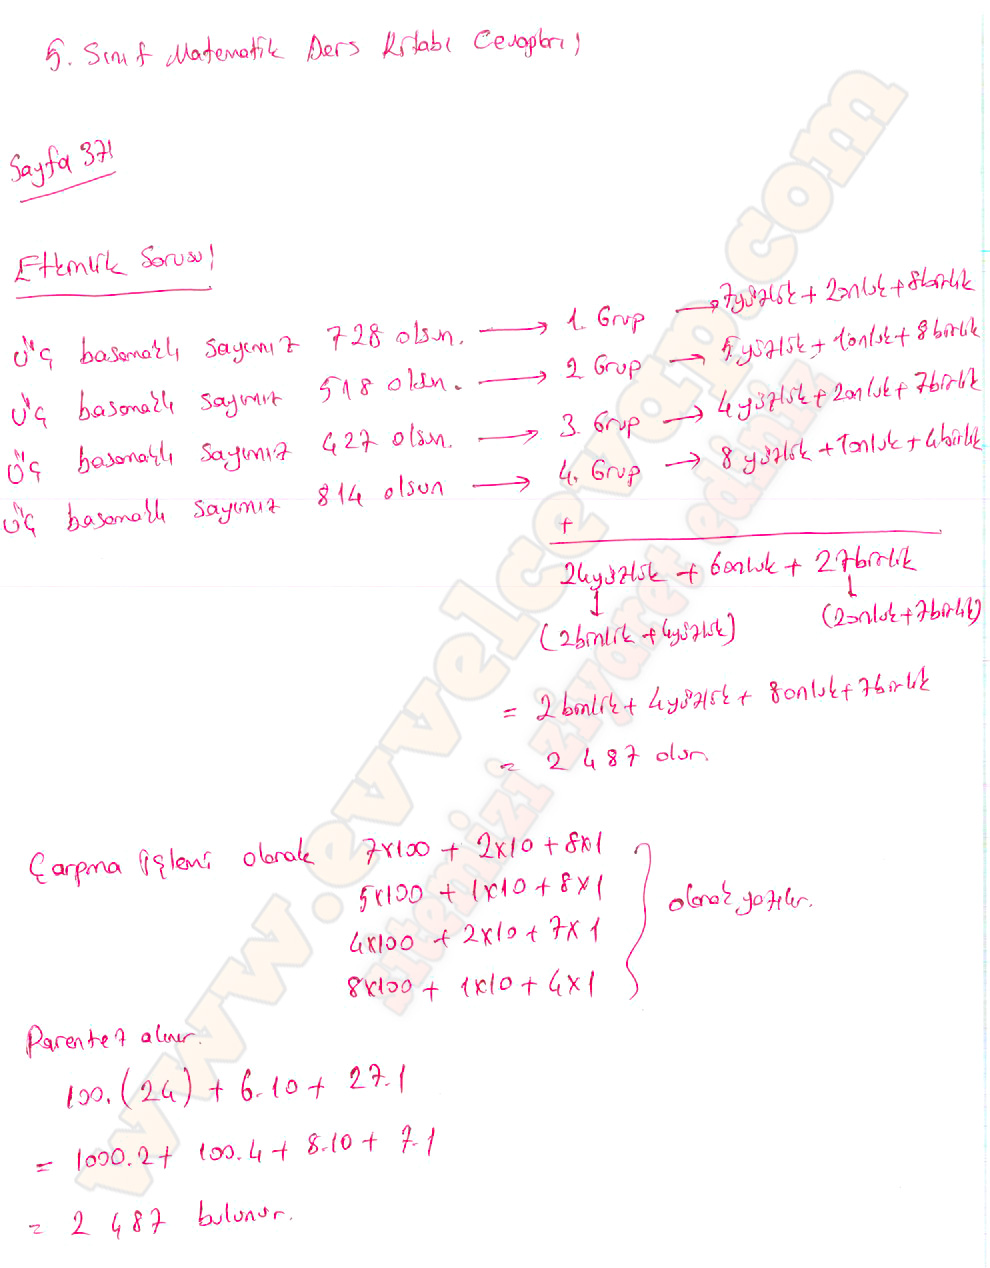 5. Sınıf Matematik Ders Kitabı Cevapları
Sayfa 37
Etkinlik Sorusu
Üç basamaklı sayımız 728 olsun. → 1. Grup → 7yüzlük + 2onluk + 8birlik
Üç basamaklı sayımız 518 olsun. → 2 Grup → 5 yüzlük + 1onluk + 8 birlik
Üç basamaklı sayımız 427 olsun. → 3. Grup → 4 yüzlük + 2onluk + 7birlik
Üç basamaklı sayımız 814 olsun → 4. Grup → 8 yüzlük + 1onluk + 4birlik
+
24yüzlük + 6onluk + 27birlik
(2binlik + 4yüzlük) (2onluk + 7birlik)
= 2binlik + 4yüzlük + 8onluk + 7birlik
= 2 487 olur.
Çarpma işlemi olarak 7x100 + 2x10 + 8x1
5x100 + 1x10 + 8x1
4x100 + 2x10 + 7x1
8x100 + 1x10 + 4x1
olarak yazılır.
Parantez alınır.
100.(24) + 6.10 + 27.1
= 1000.2 + 100.4 + 8.10 + 7.1
= 2 487 bulunur.
www.evvelcevap.com
sitemizi ziyaret ediniz